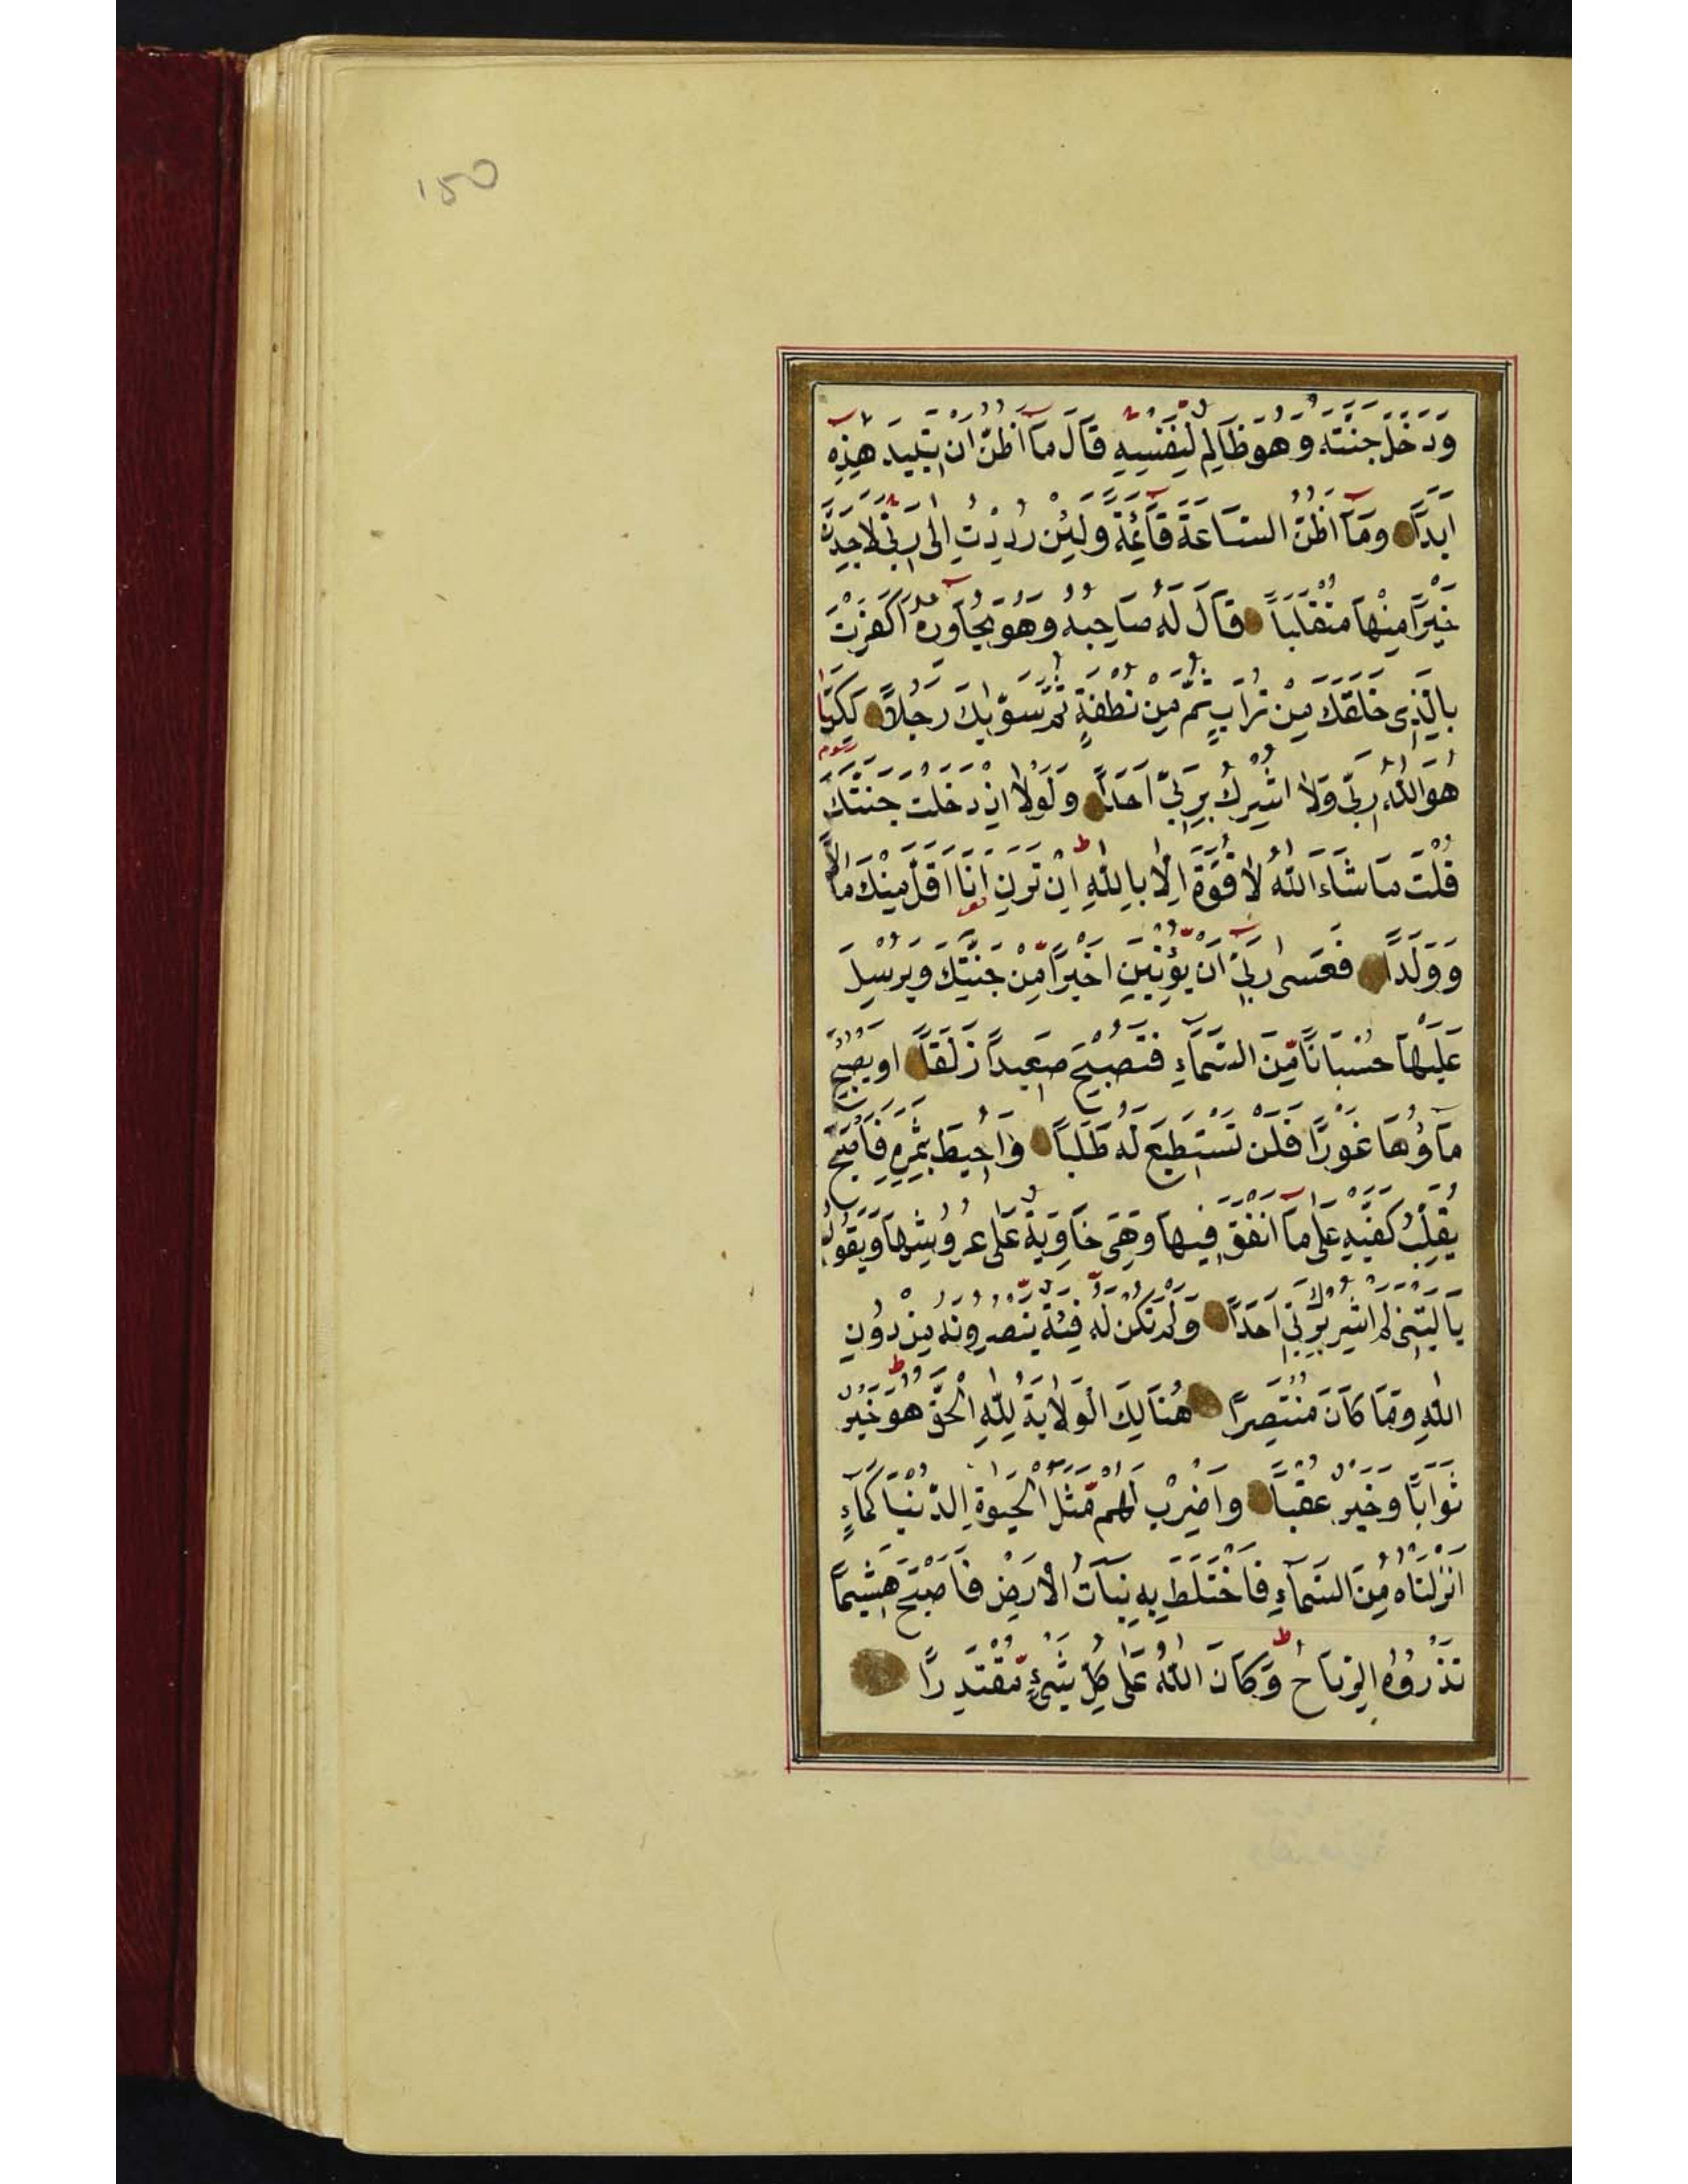 150
وَدَخَلَ جَنَّتَهُ وَهُوَ ظَالِمٌ لِنَفْسِهِ قَالَ مَآ اَظُنُّ اَنْ تَبٖيدَ هٰذِهٖٓ
اَبَدًا وَمَآ اَظُنُّ السَّاعَةَ قَآئِمَةً وَلَئِنْ رُدِدْتُ اِلٰى رَبّٖى لَاَجِدَنَّ
خَيْرًا مِنْهَا مُنْقَلَبًا قَالَ لَهُ صَاحِبُهُ وَهُوَ يُحَاوِرُهُٓ اَكَفَرْتَ
بِالَّذِى خَلَقَكَ مِنْ تُرَابٍ ثُمَّ مِنْ نُطْفَةٍ ثُمَّ سَوّٰيكَ رَجُلًا لٰكِنَّا
هُوَ اللّٰهُ رَبّٖى وَلَا اُشْرِكُ بِرَبّٖى اَحَدًا وَلَوْلَا اِذْ دَخَلْتَ جَنَّتَكَ
قُلْتَ مَا شَاءَ اللّٰهُ لَا قُوَّةَ اِلَّا بِاللّٰهِ اِنْ تَرَنِ اَنَا اَقَلَّ مِنْكَ مَالًا
وَوَلَدًا فَعَسٰى رَبّٖى اَنْ يُؤْتِيَنِ خَيْرًا مِنْ جَنَّتِكَ وَيُرْسِلَ
عَلَيْهَا حُسْبَانًا مِنَ السَّمَآءِ فَتُصْبِحَ صَعٖيدًا زَلَقًا اَوْ يُصْبِحَ
مَآؤُهَا غَوْرًا فَلَنْ تَسْتَطٖيعَ لَهُ طَلَبًا وَاُحٖيطَ بِثَمَرِهٖ فَاَصْبَحَ
يُقَلِّبُ كَفَّيْهِ عَلٰى مَآ اَنْفَقَ فٖيهَا وَهِىَ خَاوِيَةٌ عَلٰى عُرُوشِهَا وَيَقُولُ
يَا لَيْتَنٖى لَمْ اُشْرِكْ بِرَبّٖى اَحَدًا وَلَمْ تَكُنْ لَهُ فِئَةٌ يَنْصُرُونَهُ مِنْ دُونِ
اللّٰهِ وَمَا كَانَ مُنْتَصِرًا هُنَالِكَ الْوَلَايَةُ لِلّٰهِ الْحَقِّ هُوَ خَيْرٌ
ثَوَابًا وَخَيْرٌ عُقْبًا وَاضْرِبْ لَهُمْ مَثَلَ الْحَيٰوةِ الدُّنْيَا كَمَآءٍ
اَنْزَلْنَاهُ مِنَ السَّمَآءِ فَاخْتَلَطَ بِهٖ نَبَاتُ الْاَرْضِ فَاَصْبَحَ هَشٖيمًا
تَذْرُوهُ الرِّيَاحُ وَكَانَ اللّٰهُ عَلٰى كُلِّ شَىْءٍ مُقْتَدِرًا